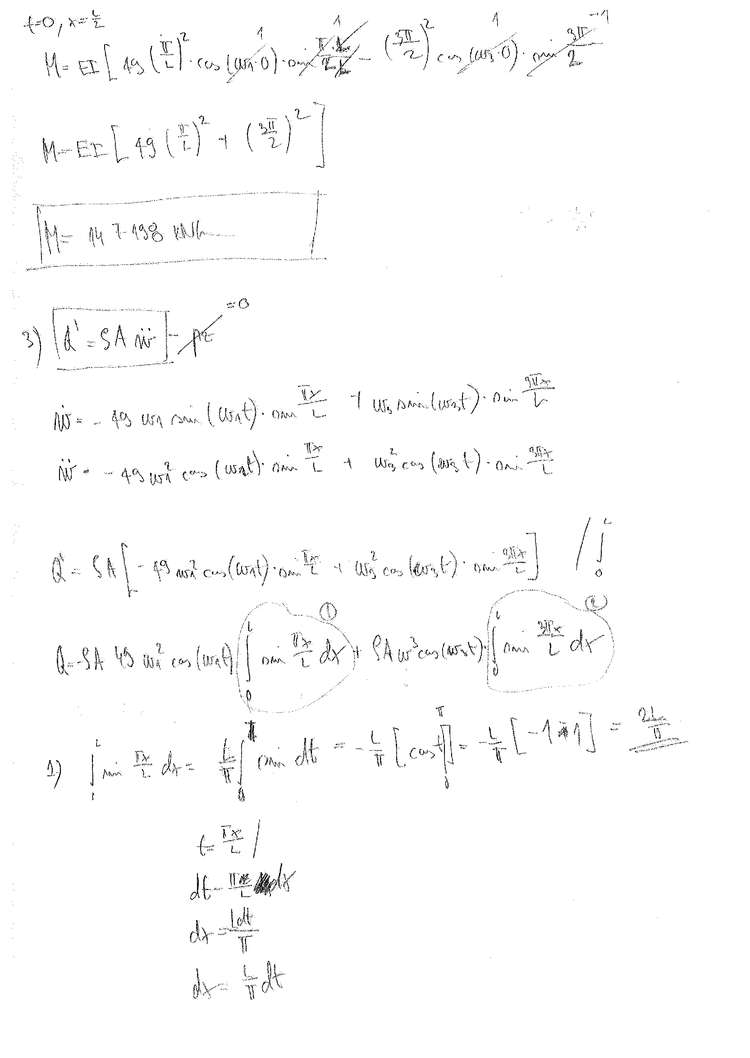 t=0, x=L/2
M=EI[49(π/L)²·cos(ω1·0)·sin π·L/2L − (3π/2)² cos(ω3·0)·sin 3π/2
1 1 1 -1
M=EI[49(π/L)² + (3π/2)²]
M= 147.198
3) Q' = SAẅ − pz =0
ẇ= - 49 ω1 sin(ω1t)·sin πx/L + ω3 sin(ω3t)·sin 3πx/L
ẅ= - 49 ω1² cos(ω1t)·sin πx/L + ω3² cos(ω3t)·sin 3πx/L
Q' = SA[- 49 ω1² cos(ω1t)·sin πx/L + ω3² cos(ω3t)·sin 3πx/L] /∫₀ᴸ
① ②
Q=-SA 49 ω1² cos(ω1t) ∫₀ᴸ sin πx/L dx + SAω³cos(ω3t)·∫₀ᴸ sin 3πx/L dx
1) ∫ᴸ sin πx/L dx = L/π ∫ sin dt = -L/π [cos t]₀^π = -L/π [-1-1] = 2L/π
t= πx/L /
dt= π/L dx
dx= Ldt/π
dx= L/π dt